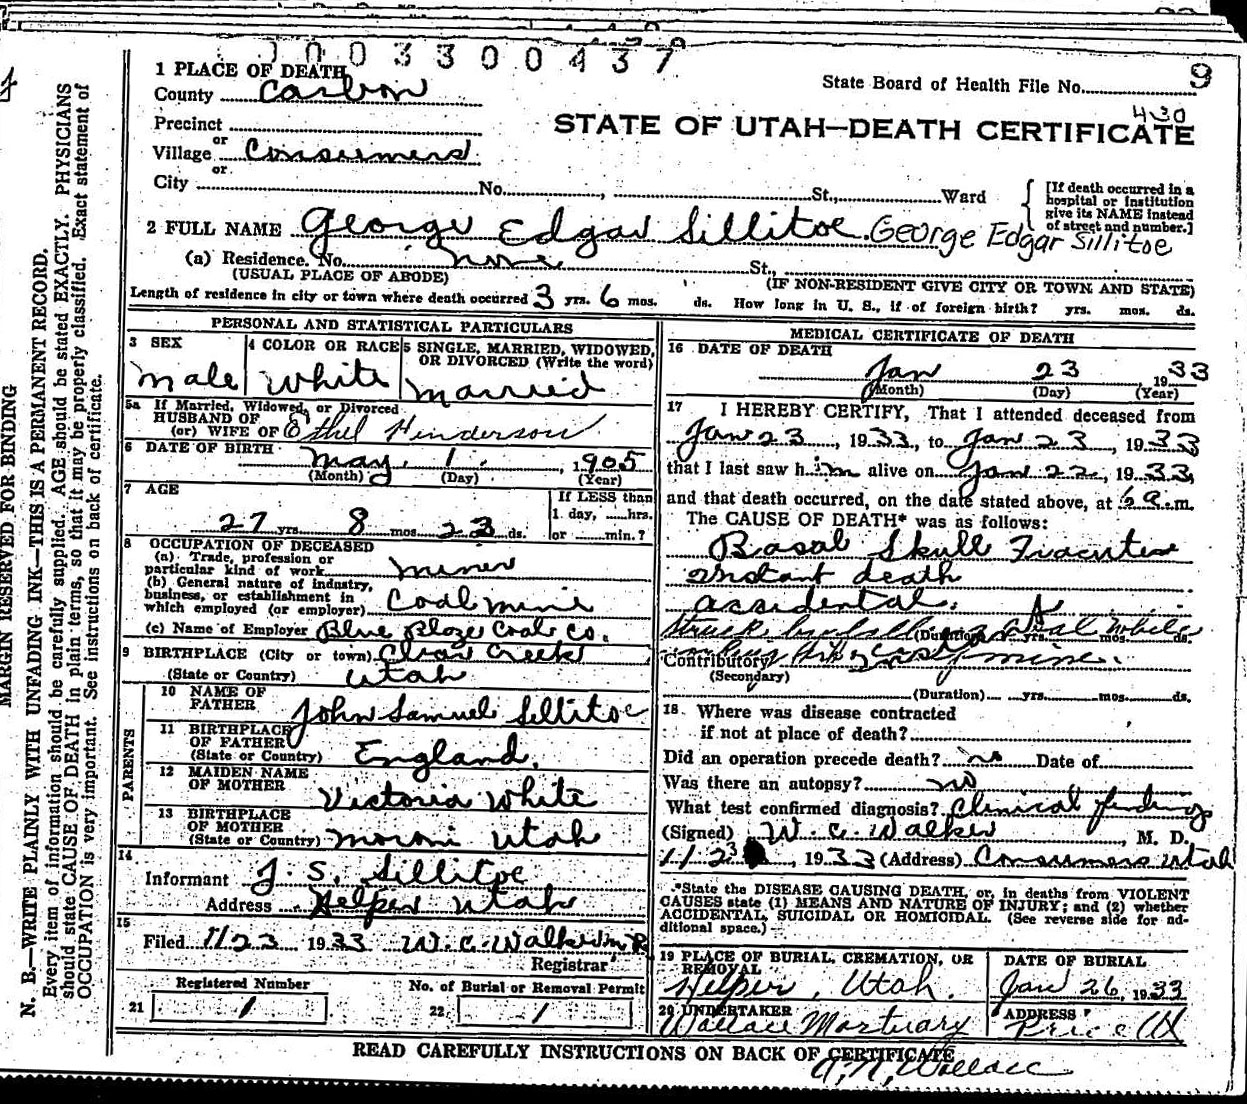 1003300437
1 PLACE OF DEATH
County Carbon
State Board of Health File No. 9
430
Precinct
or
Village Consumers
or
STATE OF UTAH—DEATH CERTIFICATE
City No. , St., Ward
[If death occurred in a
hospital or institution
give its NAME instead
of street and number.]
2 FULL NAME George Edgar Sillitoe George Edgar Sillitoe
(a) Residence. No. none St.,
(USUAL PLACE OF ABODE) (IF NON-RESIDENT GIVE CITY OR TOWN AND STATE)
Length of residence in city or town where death occurred 3 yrs. 6 mos. ds. How long in U. S., if of foreign birth? yrs. mos. ds.
PERSONAL AND STATISTICAL PARTICULARS
3 SEX
Male
4 COLOR OR RACE
White
5 SINGLE, MARRIED, WIDOWED,
OR DIVORCED (Write the word)
Married
5a If Married, Widowed, or Divorced
HUSBAND OF
(or) WIFE OF Ethel Henderson
6 DATE OF BIRTH May 1, 1905
(Month) (Day) (Year)
7 AGE
27 yrs. 8 mos. 23 ds.
If LESS than
1 day, hrs.
or min.?
8 OCCUPATION OF DECEASED
(a) Trade, profession or
particular kind of work Miner
(b) General nature of industry,
business, or establishment in
which employed (or employer) Coal mine
(c) Name of Employer Blue Blaze Coal Co.
9 BIRTHPLACE (City or town) Clear Creek
(State or Country) Utah
PARENTS
10 NAME OF
FATHER John Samuel Sillitoe
11 BIRTHPLACE
OF FATHER
(State or Country) England.
12 MAIDEN NAME
OF MOTHER Victoria White
13 BIRTHPLACE
OF MOTHER
(State or Country) Moroni Utah
14
Informant J. S. Sillitoe
Address Helper Utah
15
Filed 1/23 1933 W. C. Walker M.D.
Registrar
Registered Number
21 1
No. of Burial or Removal Permit
22 1
MEDICAL CERTIFICATE OF DEATH
16 DATE OF DEATH
Jan 23 1933
(Month) (Day) (Year)
17 I HEREBY CERTIFY, That I attended deceased from
Jan 23, 1933, to Jan 23, 1933
that I last saw him alive on Jan 22, 1933,
and that death occurred, on the date stated above, at 6 a.m.
The CAUSE OF DEATH* was as follows:
Basal Skull Fracture
instant death
accidental.
Struck by falling coal while
(Duration) yrs. mos. ds.
working in mine.
Contributory
(Secondary)
(Duration) yrs. mos. ds.
18 Where was disease contracted
if not at place of death?
Did an operation precede death? no Date of
Was there an autopsy? no
What test confirmed diagnosis? Clinical finding
(Signed) W. C. Walker, M. D.
1/23, 1933 (Address) Consumers Utah
*State the DISEASE CAUSING DEATH, or, in deaths from VIOLENT
CAUSES state (1) MEANS AND NATURE OF INJURY; and (2) whether
ACCIDENTAL, SUICIDAL OR HOMICIDAL. (See reverse side for ad-
ditional space.)
19 PLACE OF BURIAL, CREMATION, OR
REMOVAL
Helper, Utah.
DATE OF BURIAL
Jan 26, 1933
20 UNDERTAKER
Wallace Mortuary
ADDRESS
Price Ut
READ CAREFULLY INSTRUCTIONS ON BACK OF CERTIFICATE
A. N. Wallace
MARGIN RESERVED FOR BINDING
N. B.—WRITE PLAINLY WITH UNFADING INK—THIS IS A PERMANENT RECORD.
Every item of information should be carefully supplied. AGE should be stated EXACTLY. PHYSICIANS
should state CAUSE OF DEATH in plain terms, so that it may be properly classified. Exact statement of
OCCUPATION is very important. See instructions on back of certificate.